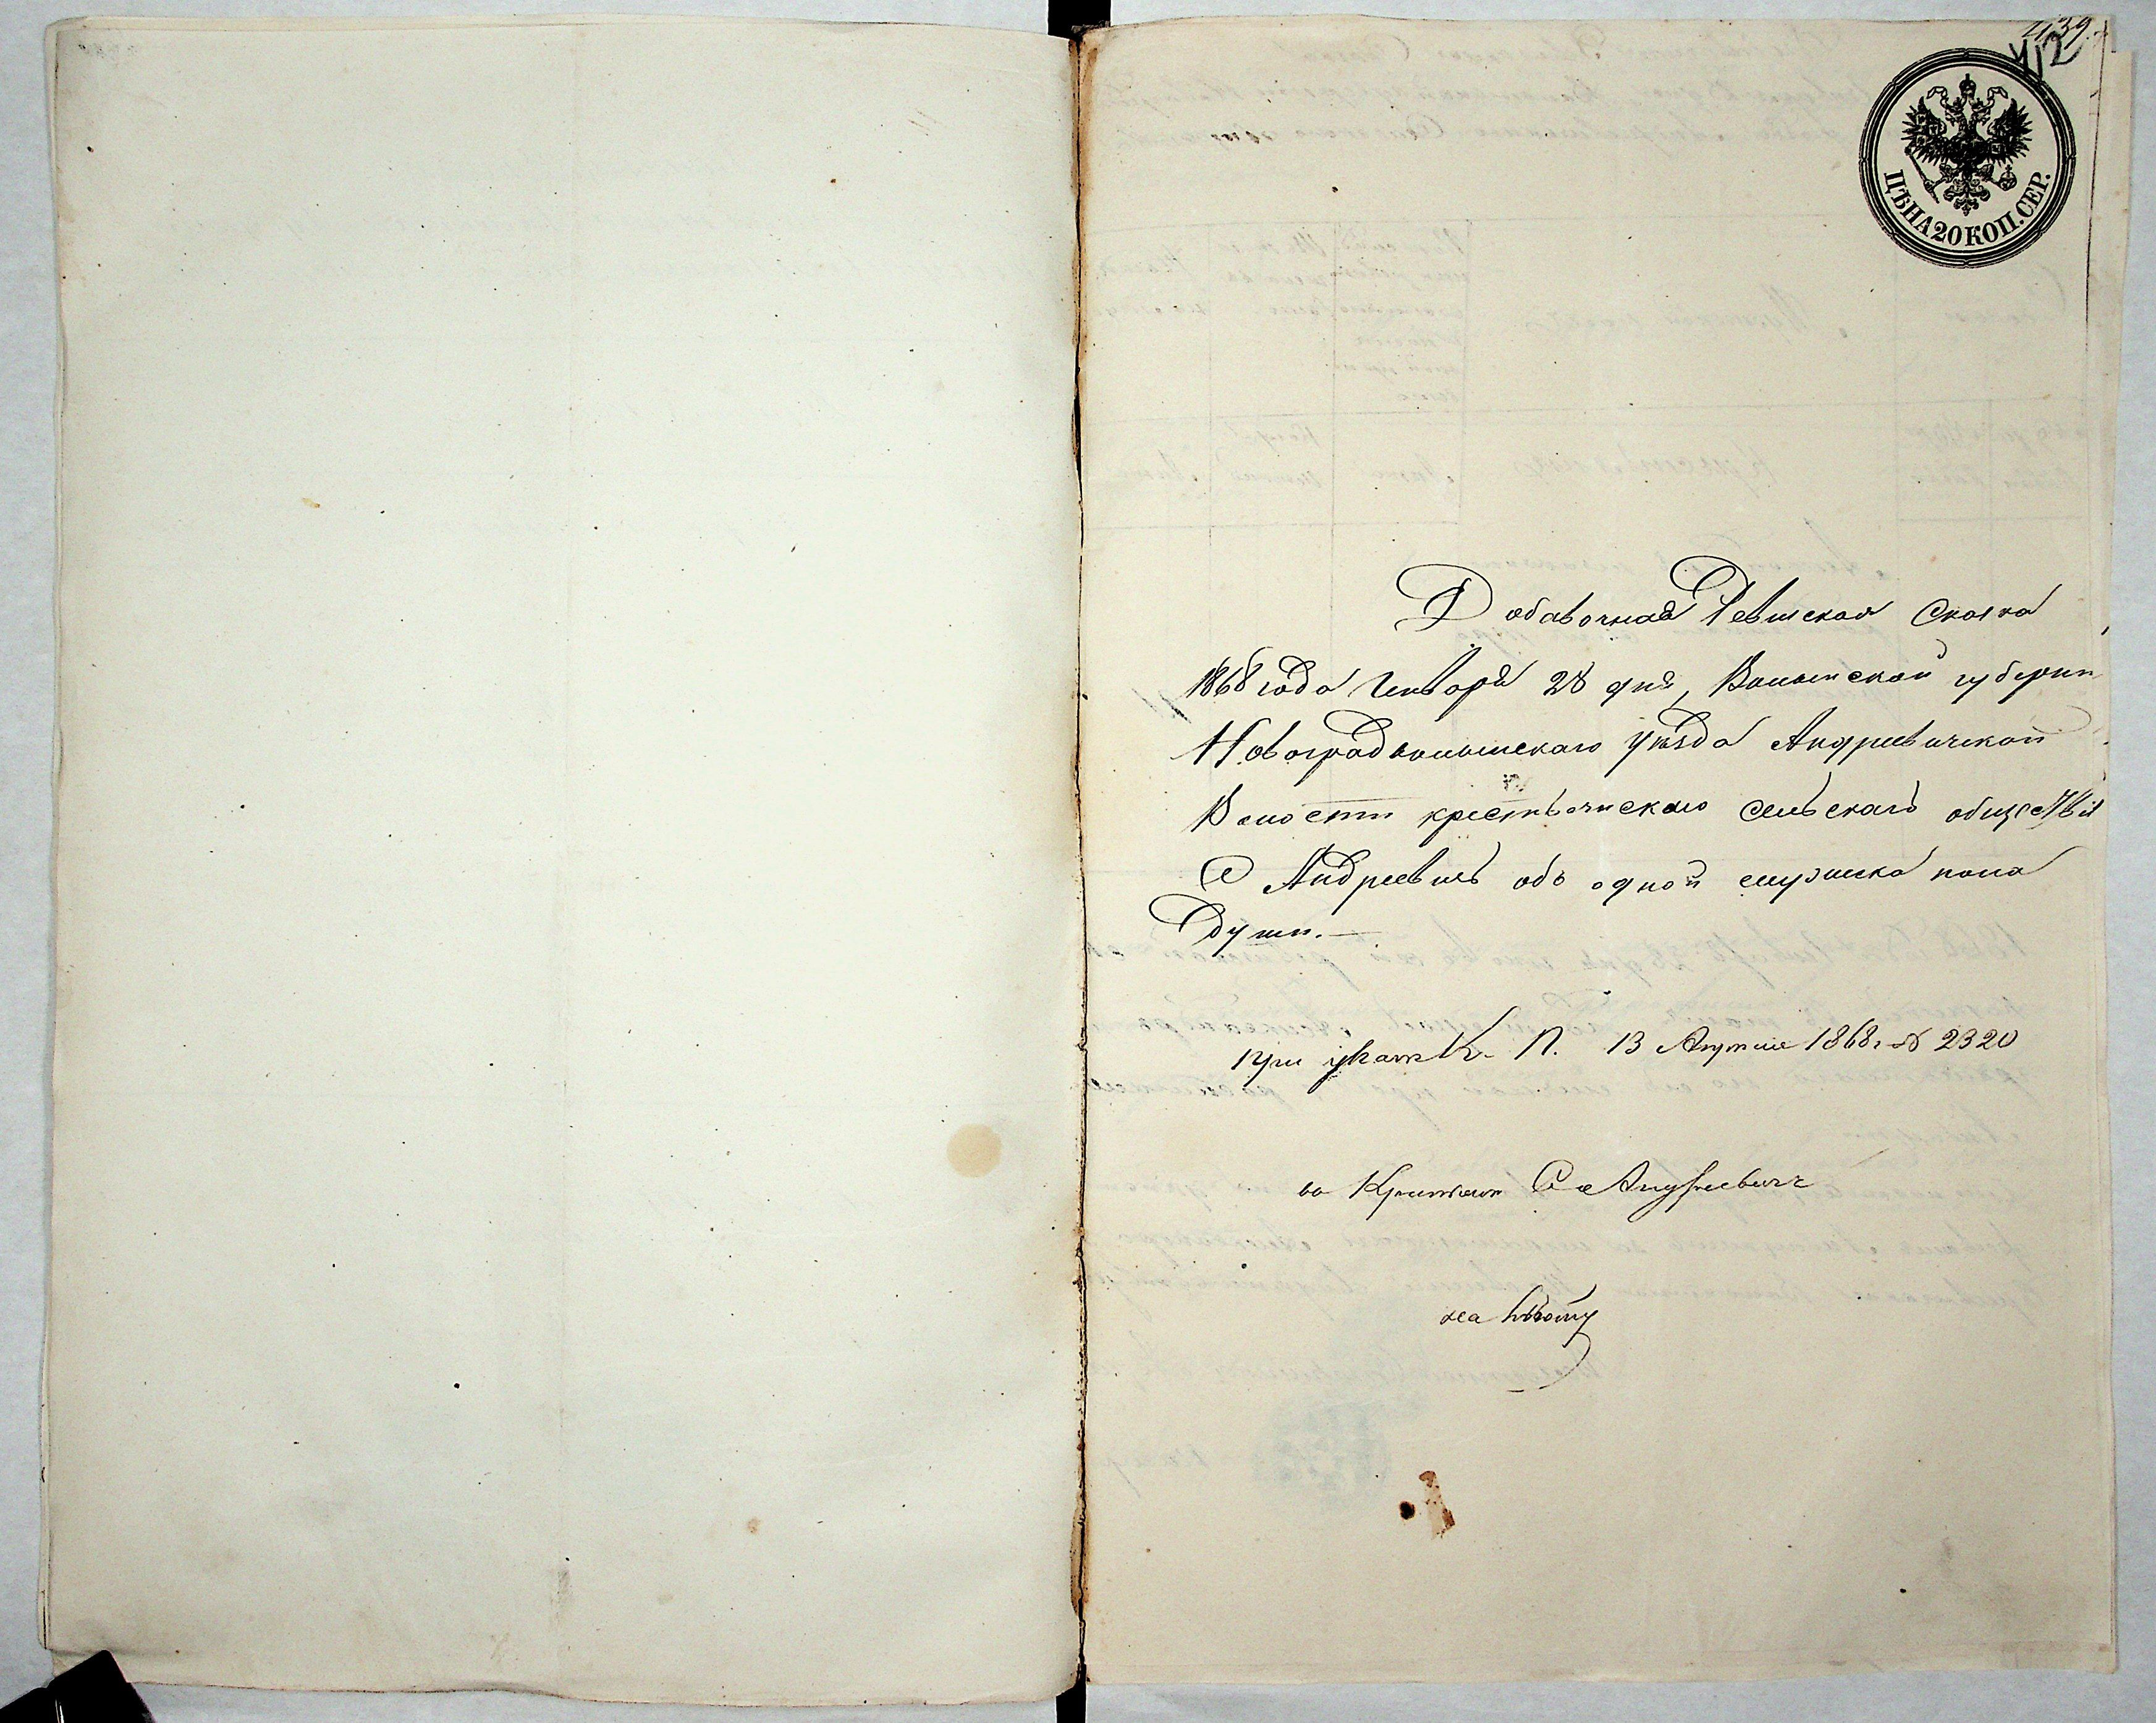 1139.
112
ЦѢНА 20 КОП. СЕР.
Добавочная Ревизская Сказка
1868 года Генваря 28 дня, Волынской губернии
Новоградволынскаго Уѣзда Андреевичской
Волости крестьянскаго сельскаго общества
С Андреевичь объ одной мужеска пола
души.—
При указѣ К. П. 13 Апрѣля 1868 г № 2320
С Андреевичь